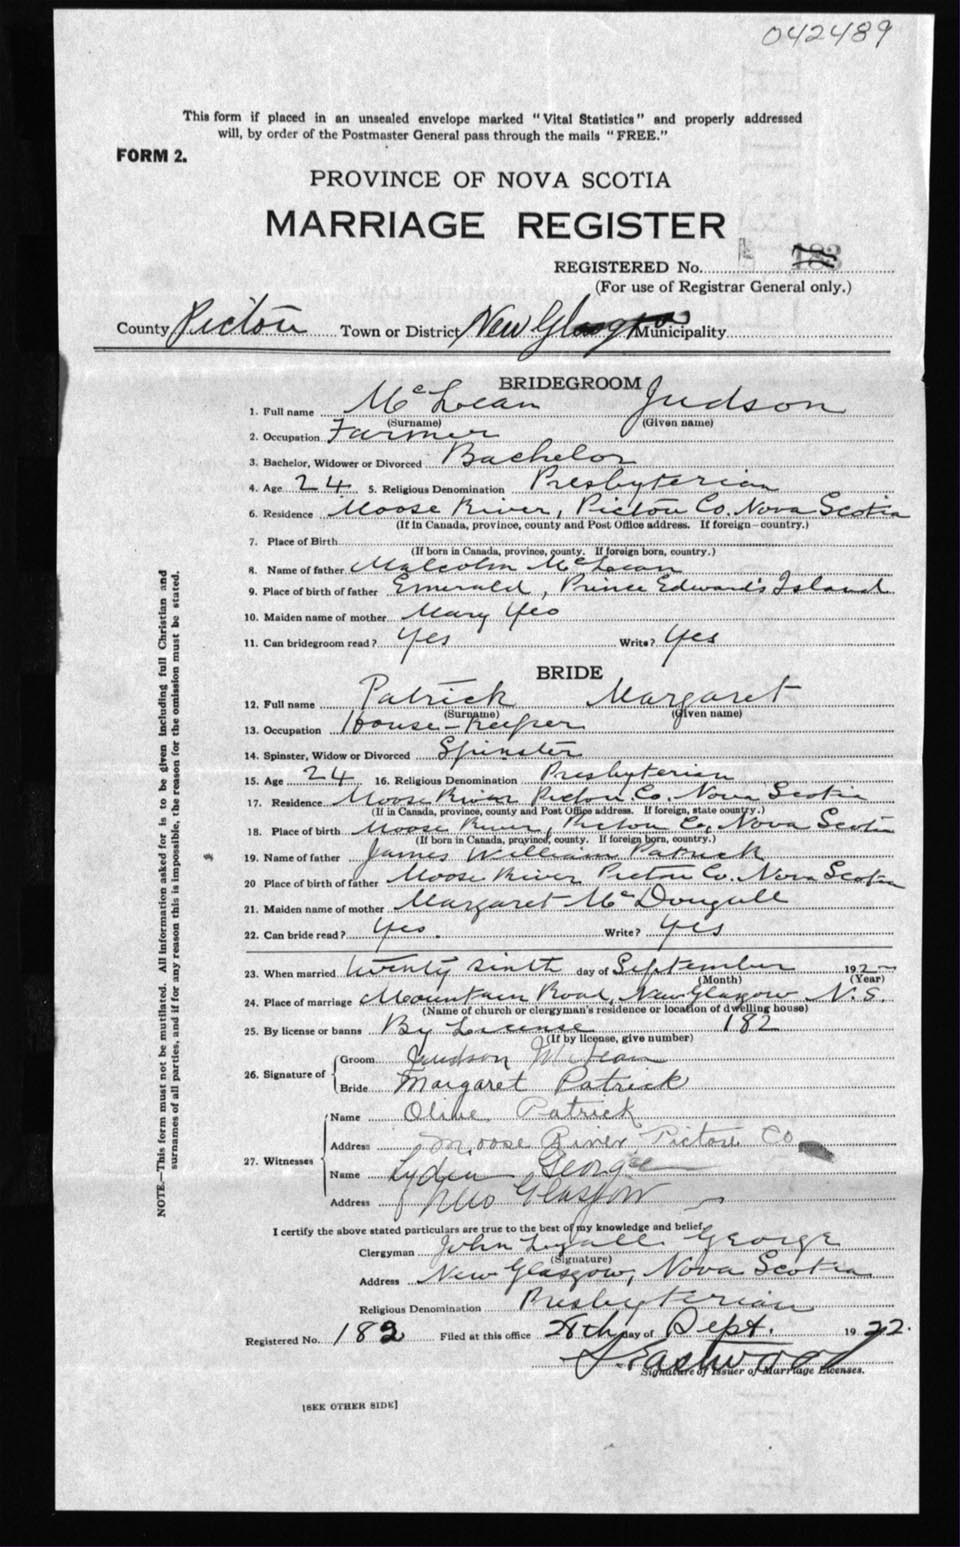 042489
This form if placed in an unsealed envelope marked "Vital Statistics" and properly addressed
will, by order of the Postmaster General pass through the mails "FREE."
FORM 2.
PROVINCE OF NOVA SCOTIA
MARRIAGE REGISTER
REGISTERED No.
(For use of Registrar General only.)
County Pictou Town or District New Glasgow Municipality
BRIDEGROOM
1. Full name McLean Judson
(Surname) (Given name)
2. Occupation Farmer
3. Bachelor, Widower or Divorced Bachelor
4. Age 24 5. Religious Denomination Presbyterian
6. Residence Moose River, Pictou Co. Nova Scotia
(If in Canada, province, county and Post Office address. If foreign—country.)
7. Place of Birth
(If born in Canada, province, county. If foreign born, country.)
8. Name of father Malcolm McLean
9. Place of birth of father Emerald, Prince Edward's Island
10. Maiden name of mother Mary Yeo
11. Can bridegroom read? Yes Write? Yes
BRIDE
12. Full name Patrick Margaret
(Surname) (Given name)
13. Occupation House-Keeper
14. Spinster, Widow or Divorced Spinster
15. Age 24 16. Religious Denomination Presbyterian
17. Residence Moose River Pictou Co. Nova Scotia
(If in Canada, province, county and Post Office address. If foreign, state country.)
18. Place of birth Moose River, Pictou Co, Nova Scotia
(If born in Canada, province, county. If foreign born, country.)
19. Name of father James William Patrick
20 Place of birth of father Moose River Pictou Co. Nova Scotia
21. Maiden name of mother Margaret McDougall
22. Can bride read? Yes. Write? Yes
23. When married twenty sixth day of September 192
(Month) (Year)
24. Place of marriage Mountain Road, New Glasgow N.S.
(Name of church or clergyman's residence or location of dwelling house)
25. By license or banns By License 182
(If by license, give number)
26. Signature of
Groom Judson McLean
Bride Margaret Patrick
27. Witnesses
Name Olive Patrick
Address Moose River Pictou Co
Name Lydia George
Address New Glasgow
I certify the above stated particulars are true to the best of my knowledge and belief
Clergyman John Lyall George
(Signature)
Address New Glasgow, Nova Scotia
Religious Denomination Presbyterian
Registered No. 182 Filed at this office 28th day of Sept. 1922.
Eastwood
Signature of Issuer of Marriage Licenses.
[SEE OTHER SIDE]
NOTE.—This form must not be mutilated. All information asked for is to be given including full Christian and
surnames of all parties, and if for any reason this is impossible, the reason for the omission must be stated.